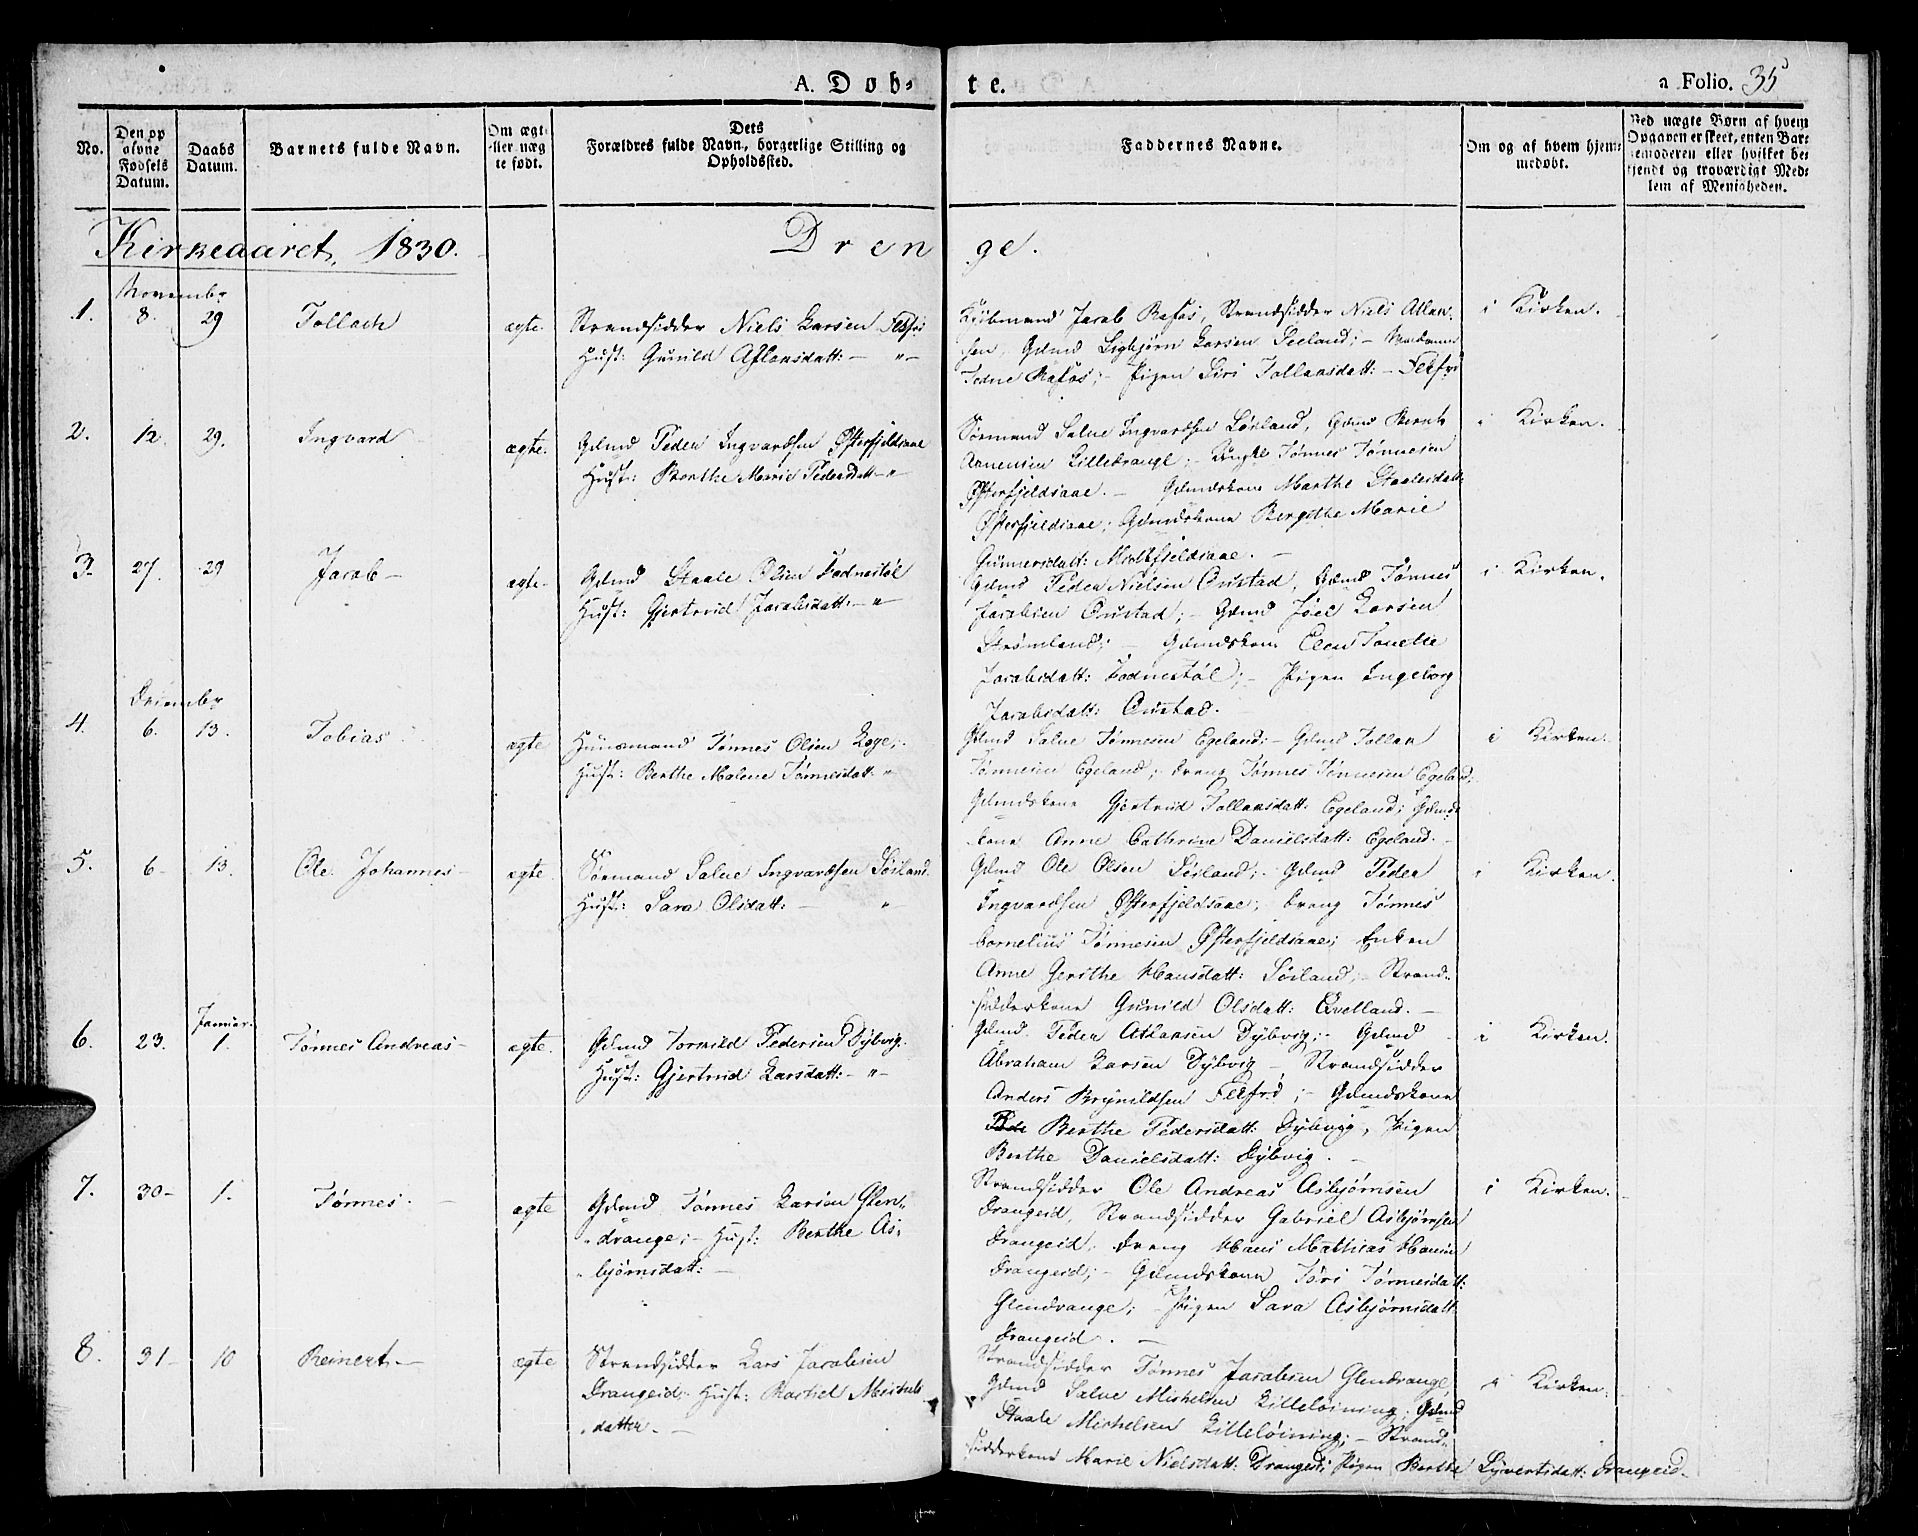 A. Døb-
te.
a Folio. 35
No.
Den op
givne
Fødsels
Datum.
Daabs
Datum.
Barnets fulde Navn.
Om ægte
eller uæg
te født.
Dets
Forældres fulde Navn, borgerlige Stilling og
Opholdssted.
Faddernes Navne.
Om og af hvem hjem-
medøbt.
Ved uægte Børn af hvem
Opgaven er skeet, enten Bar-
nemoderen eller hvilket be-
kjendt og troværdigt Med-
lem af Menigheden.
Kirkeaaret, 1830.
Drenge.
Novembr
1. 8. 29 Tollach ægte. Strandsidder Niels Larsen Fedfos
Hust: Gunild Atlansdatt: – „ –
Kjøbmand Jacob Rafos, Strandsidder Niels Atlan-
sen, Gdmd Sigbjørn Larsen Seeland; – Madame
Todne Rafos; – Pigen Siri Tollansdatt: –
i Kirken.
2. 12. 29. Ingvard ægte. Gdmd Peder Ingvardsen Østerfjeldsaae
Hust: Berthe Marie Pedersdatt – „
Sørmand Salve Ingvardsen Løiland, Gdmd Bernt
Arnensen Lilledrange; – Ungk: Tønnes Tønnesen
Østerfjeldsaae. – Gdmdskone Marthe Staalesdatt:
Østerfjeldsaae; Gdmdskone Bergithe Marie
Gunnersdatt: Midtfjeldsaae. –
i Kirken.
3. 27. 29 Jacob – ægte. Gdmd Staale Olsen Fodnestøl
Hust: Gjertrud Jacobsdatt: – „ –
Gdmd Peder Nielsen Onstad, Gdmd Tønnes
Jacobsen Onstad; – Gdmd Joel Larsen
Strømland; – Gdmdskone Elen Tonette
Jacobsdatt: Fodnestøl; – Pigen Ingeborg
Jacobsdatt: Onstad.
i Kirken.
Decembr
4. 6. 13. Tobias ægte Huusmand Tønnes Olsen Ege;
Hust: Berthe Malene Tønnesdatt: „
Gdmd Salve Tønnesen Egeland; – Gdmd Tollan
Tønnesen Egeland; Dreng Tønnes Tønnesen Egeland;
Gdmdskone Gjertrud Tollansdatt: Egeland; Gdmds-
kone Anne Cathrine Danielsdatt: Egeland. –
i Kirken.
5. 6 – 13. Ole Johannes – ægte. Sørmand Salve Ingvardsen Løiland.
Hust: Sara Olsdatt: – „ –
Gdmd Ole Olsen Løiland; – Gdmd Peder
Ingvardsen Østerfjeldsaae; Dreng Tønnes
Cornelius Tønnesen Østerfjeldsaae; Enken
Anne Gerthe Hansdatt: Løiland; – Strand-
sidderkone Gunild Olsdatt: Qvelland. –
i Kirken.
Januar.
6. 23. 1. Tønnes Andreas – ægte. Gdmd Tormild Pedersen Dybvig.
Hust: Gjertrud Larsdatt: – „ –
Gdmd Peder Atlansen Dybvig; – Gdmd
Abraham Larsen Dybvig – Strandsidder
Anders Brynildsen; – Gdmdskone
Berthe Pedersdatt: Dybvig, Pigen
Berthe Danielsdatt: Dybvig. –
i Kirken.
7. 30 – 1. Tønnes. – ægte Gdmd Tønnes Larsen Glen-
drange; – Hust: Berthe As-
bjørnsdatt: –
Strandsidder Ole Andreas Asbjørnsen
Drangeid, Strandsidder Gabriel Asbjørnsen
Drangeid. Dreng Hans Mathias Hansen
Drangeid; – Gdmdskone Tøri Tønnesdatt:
Glendrange; – Pigen Sara Asbjørnsdatt
Drangeid. –
i Kirken.
8. 31 – 10 Reinert. – ægte Strandsidder Lars Jacobsen
Drangeid; Hust: Rachel Michels
datter. –
Strandsidder Tønnes Jacobsen Glendrange,
Gdmd Salve Michelsen Lilleløining; Gdmd
Staale Michelsen Lilleløining; – Strand-
sidderkone Marie Nielsdatt: Drangeid; Pigen Berthe Syvertsdatt: Drangeid.
i Kirken.